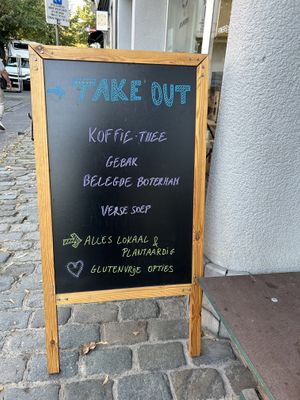 TAKE OUT
KOFFIE-THEE
GEBAK
BELEGDE BOTERHAM
VERSE SOEP
ALLES LOKAAL &
PLANTAARDIG
GLUTENVRIJE OPTIES